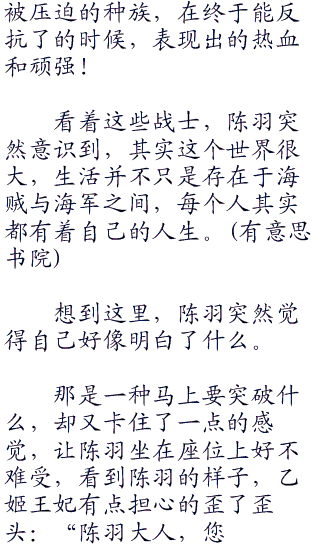 被压迫的种族，在终于能反
抗了的时候，表现出的热血
和顽强！
看着这些战士，陈羽突
然意识到，其实这个世界很
大，生活并不只是存在于海
贼与海军之间，每个人其实
都有着自己的人生。(有意思
书院)
想到这里，陈羽突然觉
得自己好像明白了什么。
那是一种马上要突破什
么，却又卡住了一点的感
觉，让陈羽坐在座位上好不
难受，看到陈羽的样子，乙
姬王妃有点担心的歪了歪
头：“陈羽大人，您